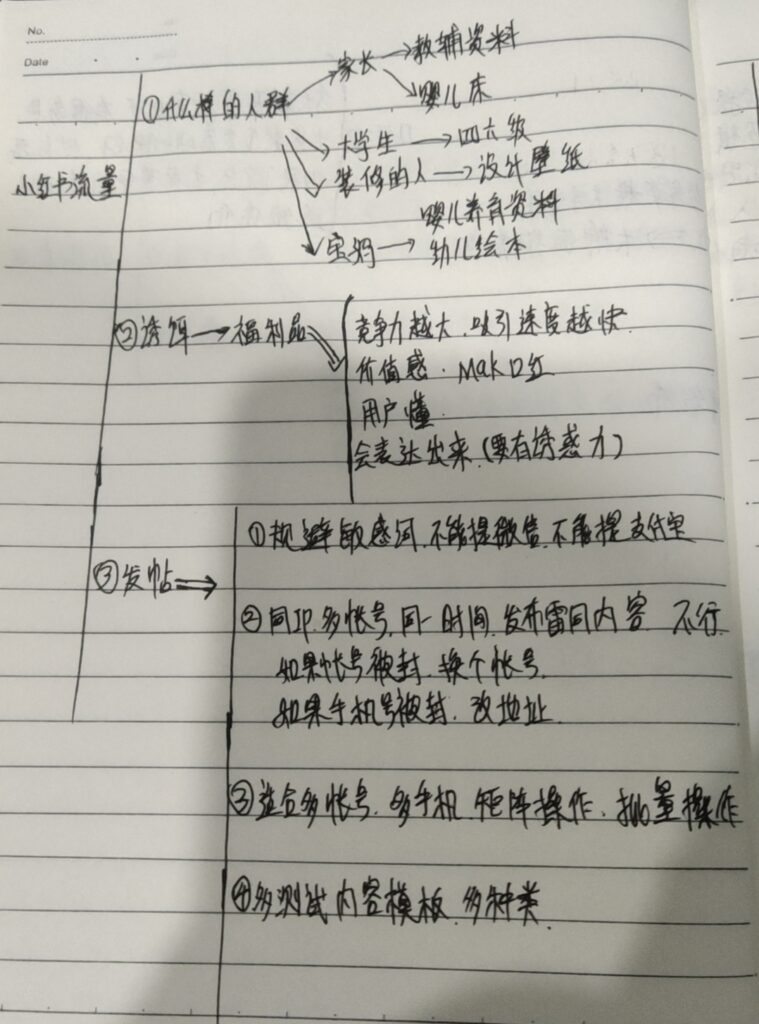 No.
Date
家长→教辅资料
①什么样的人群
婴儿床
大学生→四六级
小红书流量
装修的人→设计壁纸
婴儿养育资料
宝妈→幼儿绘本
②诱饵→福利品
竞争力越大.吸引速度越快
价值感.Mak口红
用户懂
会表达出来(要有诱惑力)
①规避敏感词.不能提微信.不能提支付宝
③发帖⇒
②同IP.多帐号.同一时间.发布雷同内容 不行
如果帐号被封.换个帐号.
如果手机号被封.改地址.
③适合多帐号.多手机.矩阵操作.批量操作
④多测试内容模板.多种类.